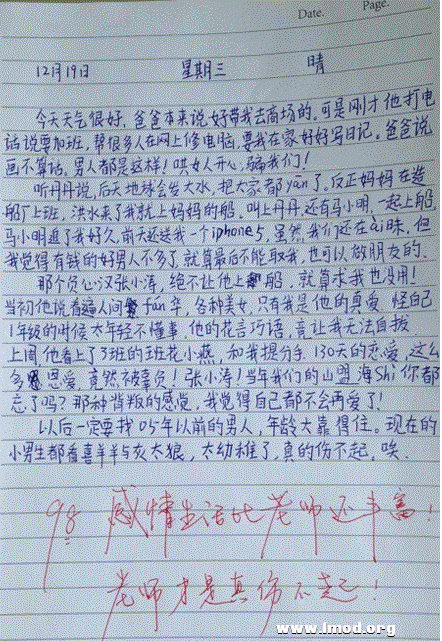 Date. Page.
12月19日 星期三 晴
今天天气很好,爸爸本来说好带我去商场的。可是刚才他打电
话说要加班,帮很多人在网上修电脑,要我在家好好写日记。爸爸说
画不算话,男人都是这样!哄女人开心,骗我们!
听丹丹说,后天地球会发大水,把大家都yān了,反正妈妈在造
船厂上班,洪水来了我就上妈妈的船。叫上丹丹,还有马小明,一起上船,
马小明追了我好久,前天还送我一个iphone5,虽然我们还在ài昧,但
我觉得有钱的好男人不多了,就算最后不能取我,也可以做朋友的.
那个负心汉张小涛,绝不让他上船,就算求我也没用!
当初他说看遍人间fán华,各种美女,只有我是他的真爱,怪自己
1年级的时候太年轻不懂事,他的花言巧语,竟让我无法自拔.
上周他看上了3班的班花小燕,和我提分手,130天的恋爱,这么
多恩爱,竟然被辜负!张小涛!当年我们的山盟海Shi你都
忘了吗?那种背叛的感觉,我觉得自己都不会再爱了!
以后一定要找05年以前的男人,年龄大靠得住。现在的
小男生都看喜羊羊与灰太狼,太幼稚了,真的伤不起,唉.
98 感情生活比老师还丰富!
老师才是真伤不起!
www.lmod.org